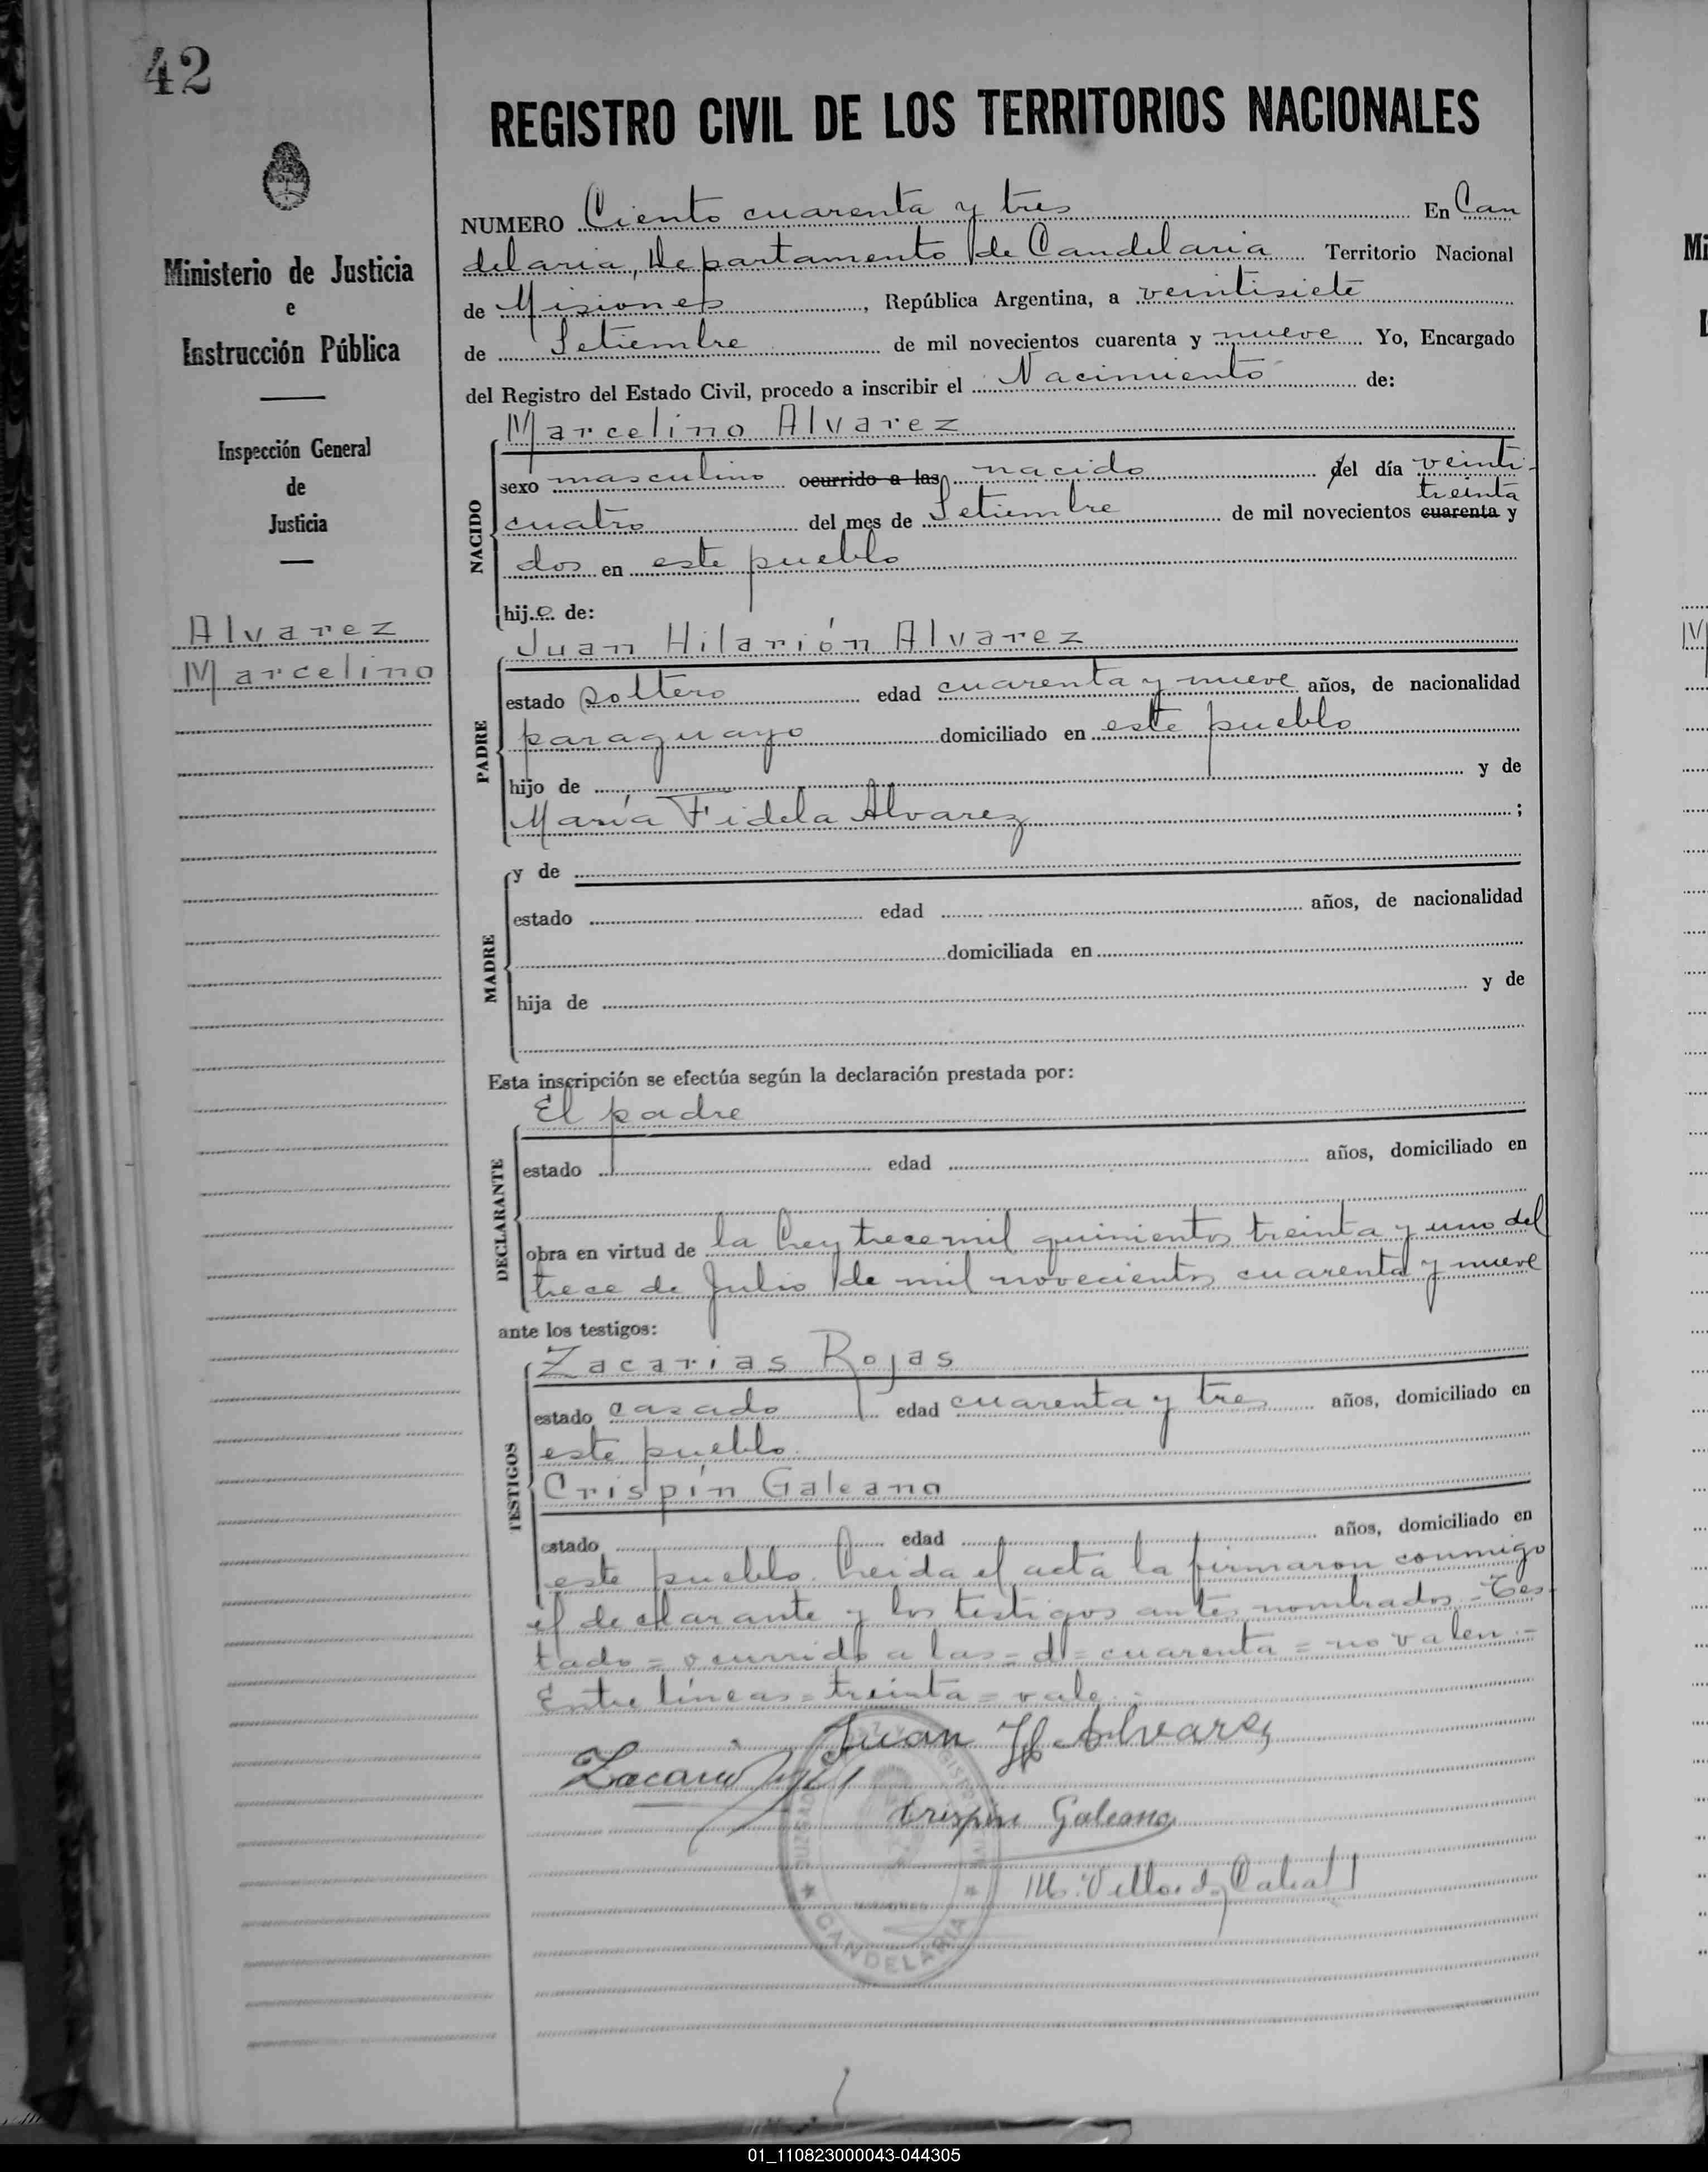 42
REGISTRO CIVIL DE LOS TERRITORIOS NACIONALES
Ministerio de Justicia
e
Instrucción Pública
Inspección General
de
Justicia
Alvarez
Marcelino
NUMERO Ciento cuarenta y tres En Can
delaria, Departamento de Candelaria Territorio Nacional
de Misiones, República Argentina, a veintisiete
de Setiembre de mil novecientos cuarenta y nueve Yo, Encargado
del Registro del Estado Civil, procedo a inscribir el Nacimiento de:
NACIDO
Marcelino Alvarez
sexo masculino ocurrido a las nacido del día veinti-
treinta
cuatro del mes de Setiembre de mil novecientos cuarenta y
dos en este pueblo
hijo de:
PADRE
Juan Hilarión Alvarez
estado soltero edad cuarenta y nueve años, de nacionalidad
paraguayo domiciliado en este pueblo
hijo de y de
María Fidela Alvarez ;
MADRE
y de
estado edad años, de nacionalidad
domiciliada en
hija de y de
Esta inscripción se efectúa según la declaración prestada por:
DECLARANTE
El padre
estado edad años, domiciliado en
obra en virtud de la Ley trece mil quinientos treinta y uno del
trece de Julio de mil novecientos cuarenta y nueve
ante los testigos:
TESTIGOS
Zacarias Rojas
estado casado edad cuarenta y tres años, domiciliado en
este pueblo
Crispín Galeano
estado edad años, domiciliado en
este pueblo. Leida el acta la firmaron conmigo
el declarante y los testigos antes nombrados - Tes-
tado = ocurrido a las = d = cuarenta = no valen.-
Entre líneas = treinta = vale.-
Juan H Alvarez
Zacarias
Crispín Galeano
CANDELARIA
01_110823000043-044305